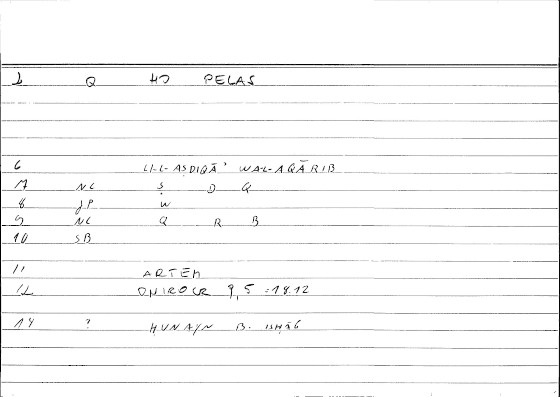 1 Q HO PELAS
6 LI-L-AṢDIQĀ' WAL-AQĀRIB
7 NC Ṣ D Q
8 JP W
9 NC Q R B
10 SB
11 ARTEM
12 ONIROCR 9,5 = 18.12
14 ? HUNAYN B. ISḤĀQ